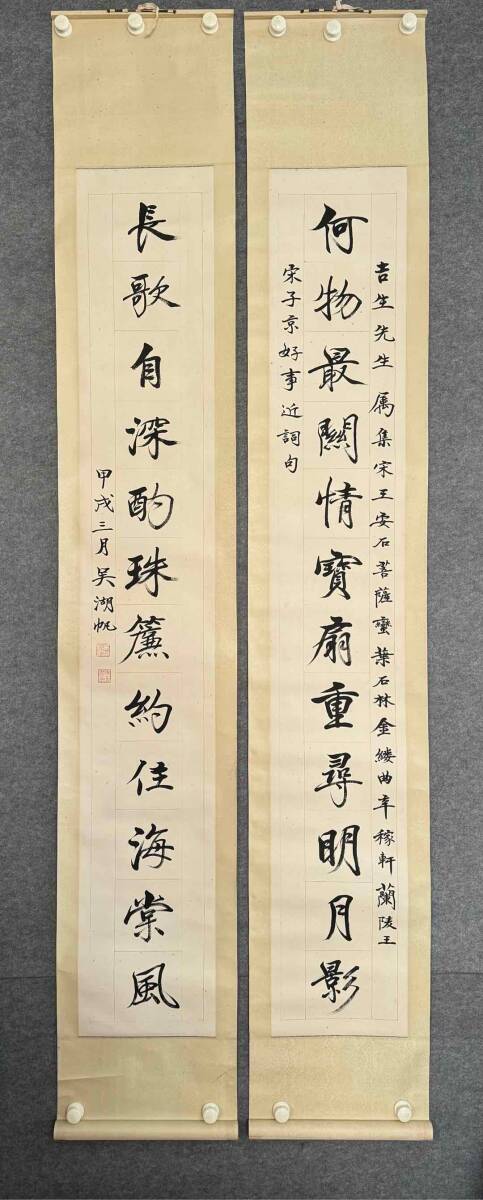 吉生先生属集宋王安石菩薩蠻葉石林金縷曲辛稼軒蘭陵王
何物最關情寶扇重尋明月影
宋子京好事近詞句
長歌自深酌珠簾約住海棠風
甲戌三月吴湖帆